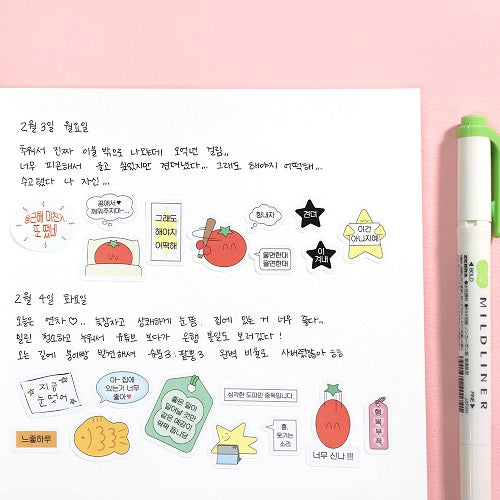 2월 3일 월요일
추워서 진짜 이불 밖으로 나오는데 오억년 걸림,,
너무 피곤해서 울고 싶었지만 견뎌냈다... 그래도 해야지 어떡해...
수고했다 나 자신...
출근해 미친
또 떴네
꿈에서♥
깨워주지마~...
그래도
해야지
어떡해
힘내자
울면한대
울면한대
견뎌
이겨내
이건
아니지예
2월 4일 화요일
오늘은 연차♡.. 늦잠자고 상쾌하게 눈뜸. 집에 있는 거 너무 좋다..
밀린 청소하고 누워서 유튜브 보다가 은행 볼일도 보러갔다!
오는 길에 붕어빵 발견해서 슈붕3·팥붕3 완벽 비율로 사버렸잖아 ㅎㅎ
지금
눈 멀어
아~ 집에
있는거 너무
좋아♥
좋은 일이
일어날 것만
같은 예감이
팍팍 듭니당
심각한 도파민 중독입니다.
흠,
웃기는
소리
너무 신나!!!
행복부적
느좋하루
MILDLINER
ZEBRA
BOLD
FINE
JAPAN